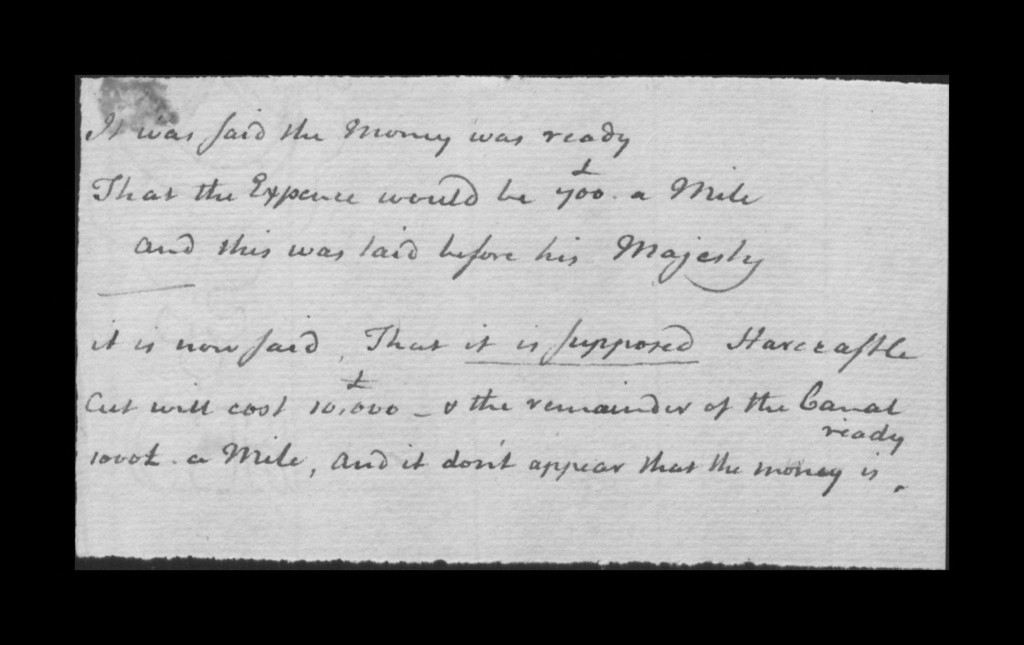 It was said the Money was ready
That the Expence would be £700. a Mile
and this was laid before his Majesty
it is now said, That it is supposed Harecastle
Cut will cost £10,000 – & the remainder of the Canal
1000£. a Mile, and it don't appear that the money is ready.